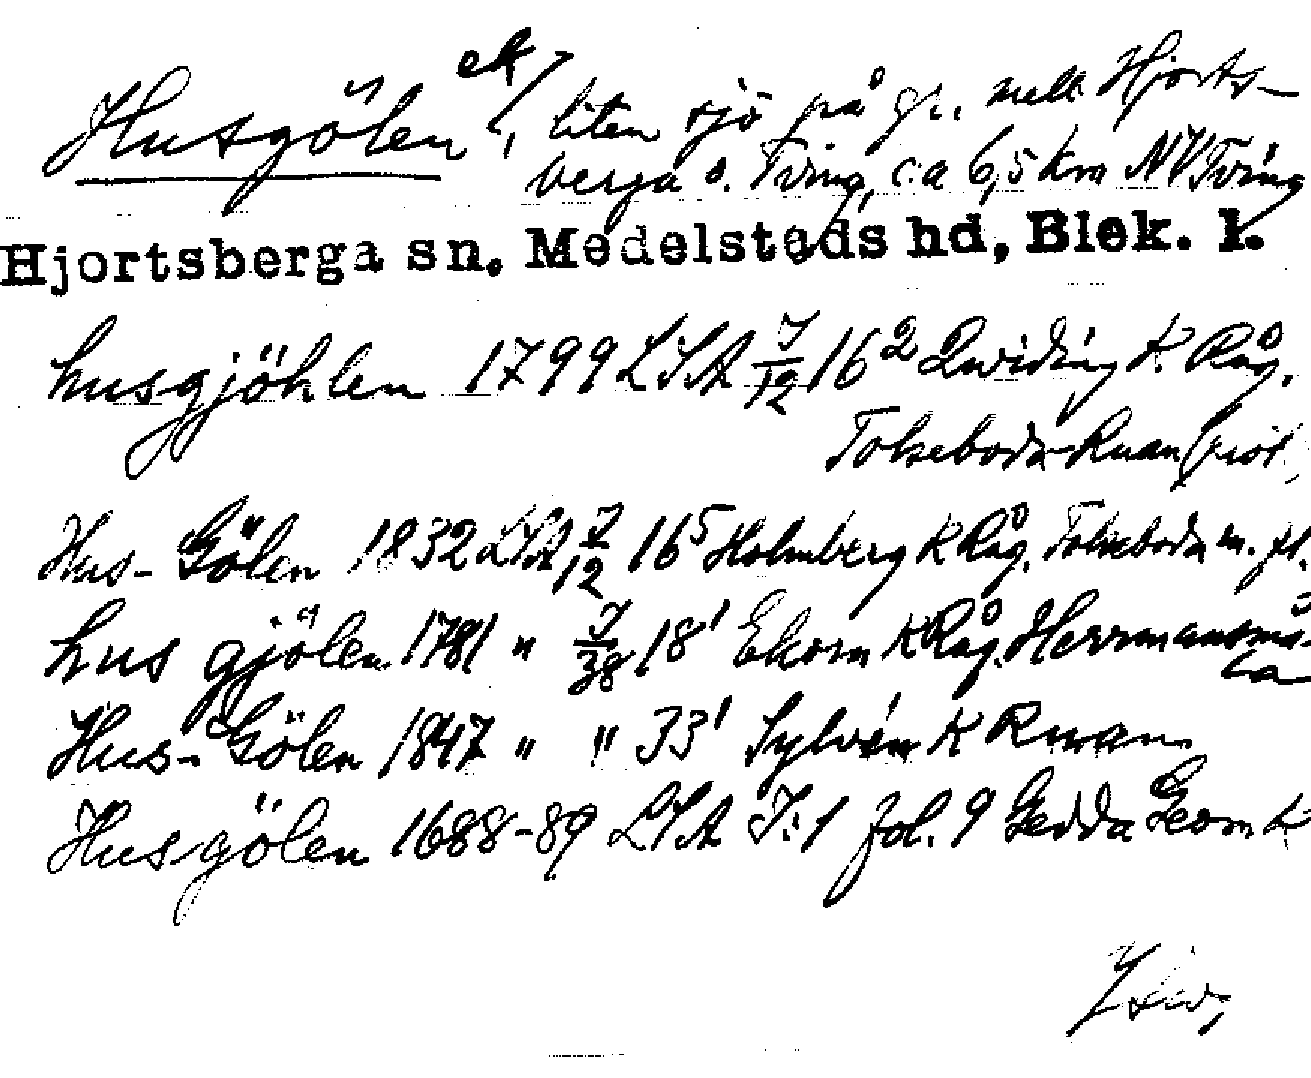 Husgölen ek/, liten sjö på gr. mell. Hjorts-
berga o. Tving, ca 6,5 km NV Tving
Hjortsberga sn. Medelsteds hd, Blek. l.
husgjöhlen 1799 LSA J/12 16² Qwiding K. Råg.
Tolseboda-Ruan (prot.
Hus-Gölen 1832 LSA J/12 16⁵ Holmberg K Råg. Tolseboda m. fl.
hus gjölen 1781 " J/38 18¹ Ekorn K Råg. Herrmansmå-
la
Hus-Gölen 1847 " " 33¹ Sylvén K Ruan
Husgölen 1688-89 LSA J:1 fol. 9 Gedda Geom K